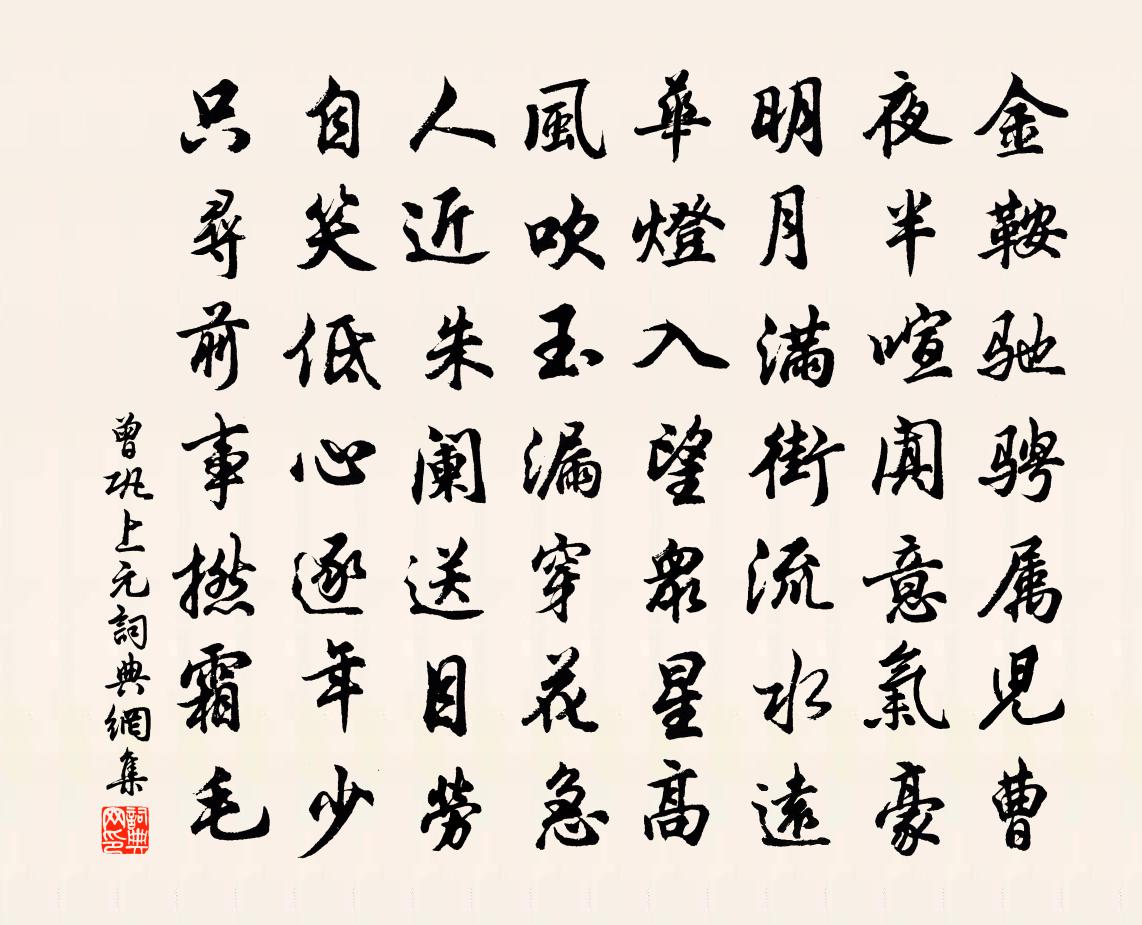 金鞍驰骋属児曹
夜半喧阗意氣豪
明月满街流水遠
華燈入望衆星高
風吹玉漏穿花急
人近朱阑送目勞
自笑低心逐年少
只尋前事撚霜毛
曾巩上元詞典網集
詞典网印